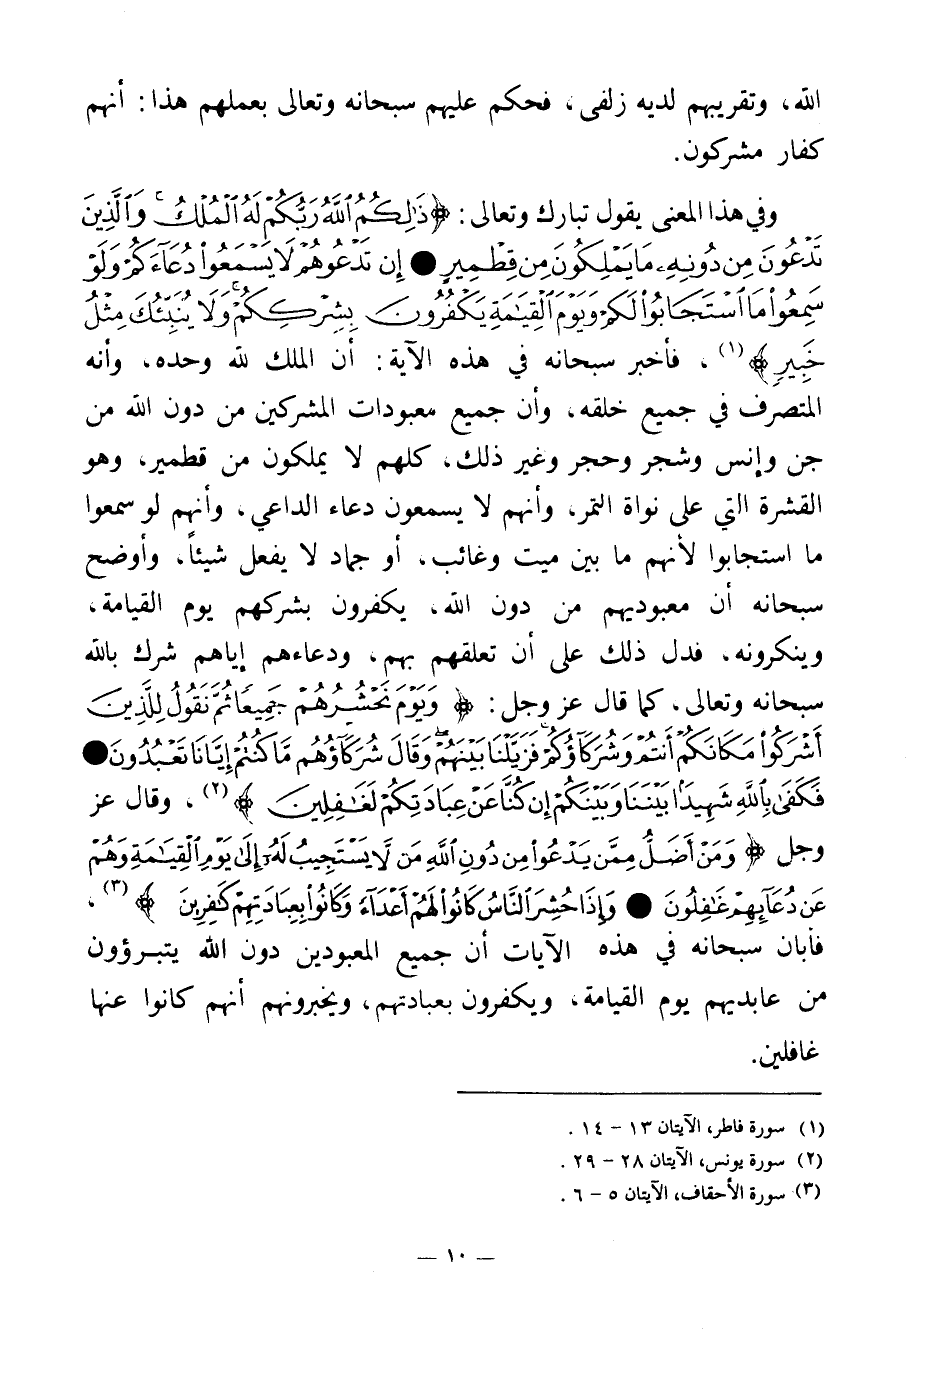 الله، وتقريبهم لديه زلفى، فحكم عليهم سبحانه وتعالى بعملهم هذا: أنهم
كفار مشركون.
وفي هذا المعنى يقول تبارك وتعالى: ﴿ذَٰلِكُمُ ٱللَّهُ رَبُّكُمْ لَهُ ٱلْمُلْكُ ۚ وَٱلَّذِينَ
تَدْعُونَ مِن دُونِهِۦ مَا يَمْلِكُونَ مِن قِطْمِيرٍ ● إِن تَدْعُوهُمْ لَا يَسْمَعُوا۟ دُعَآءَكُمْ وَلَوْ
سَمِعُوا۟ مَا ٱسْتَجَابُوا۟ لَكُمْ وَيَوْمَ ٱلْقِيَٰمَةِ يَكْفُرُونَ بِشِرْكِكُمْ ۚ وَلَا يُنَبِّئُكَ مِثْلُ
خَبِيرٍ﴾(١)، فأخبر سبحانه في هذه الآية: أن الملك لله وحده، وأنه
المتصرف في جميع خلقه، وأن جميع معبودات المشركين من دون الله من
جن وإنس وشجر وحجر وغير ذلك، كلهم لا يملكون من قطمير، وهو
القشرة التي على نواة التمر، وأنهم لا يسمعون دعاء الداعي، وأنهم لو سمعوا
ما استجابوا لأنهم ما بين ميت وغائب، أو جماد لا يفعل شيئاً، وأوضح
سبحانه أن معبوديهم من دون الله، يكفرون بشركهم يوم القيامة،
وينكرونه، فدل ذلك على أن تعلقهم بهم، ودعاءهم إياهم شرك بالله
سبحانه وتعالى، كما قال عز وجل: ﴿وَيَوْمَ نَحْشُرُهُمْ جَمِيعًا ثُمَّ نَقُولُ لِلَّذِينَ
أَشْرَكُوا۟ مَكَانَكُمْ أَنتُمْ وَشُرَكَآؤُكُمْ ۚ فَزَيَّلْنَا بَيْنَهُمْ ۖ وَقَالَ شُرَكَآؤُهُم مَّا كُنتُمْ إِيَّانَا تَعْبُدُونَ ●
فَكَفَىٰ بِٱللَّهِ شَهِيدًۢا بَيْنَنَا وَبَيْنَكُمْ إِن كُنَّا عَنْ عِبَادَتِكُمْ لَغَٰفِلِينَ﴾(٢)، وقال عز
وجل ﴿وَمَنْ أَضَلُّ مِمَّن يَدْعُوا۟ مِن دُونِ ٱللَّهِ مَن لَّا يَسْتَجِيبُ لَهُۥٓ إِلَىٰ يَوْمِ ٱلْقِيَٰمَةِ وَهُمْ
عَن دُعَآئِهِمْ غَٰفِلُونَ ● وَإِذَا حُشِرَ ٱلنَّاسُ كَانُوا۟ لَهُمْ أَعْدَآءً وَكَانُوا۟ بِعِبَادَتِهِمْ كَٰفِرِينَ﴾(٣)،
فأبان سبحانه في هذه الآيات أن جميع المعبودين دون الله يتبرؤون
من عابديهم يوم القيامة، ويكفرون بعبادتهم، ويخبرونهم أنهم كانوا عنها
غافلين.
(١) سورة فاطر، الآيتان ١٣ - ١٤.
(٢) سورة يونس، الآيتان ٢٨ - ٢٩.
(٣) سورة الأحقاف، الآيتان ٥ - ٦.
— ١٠ —